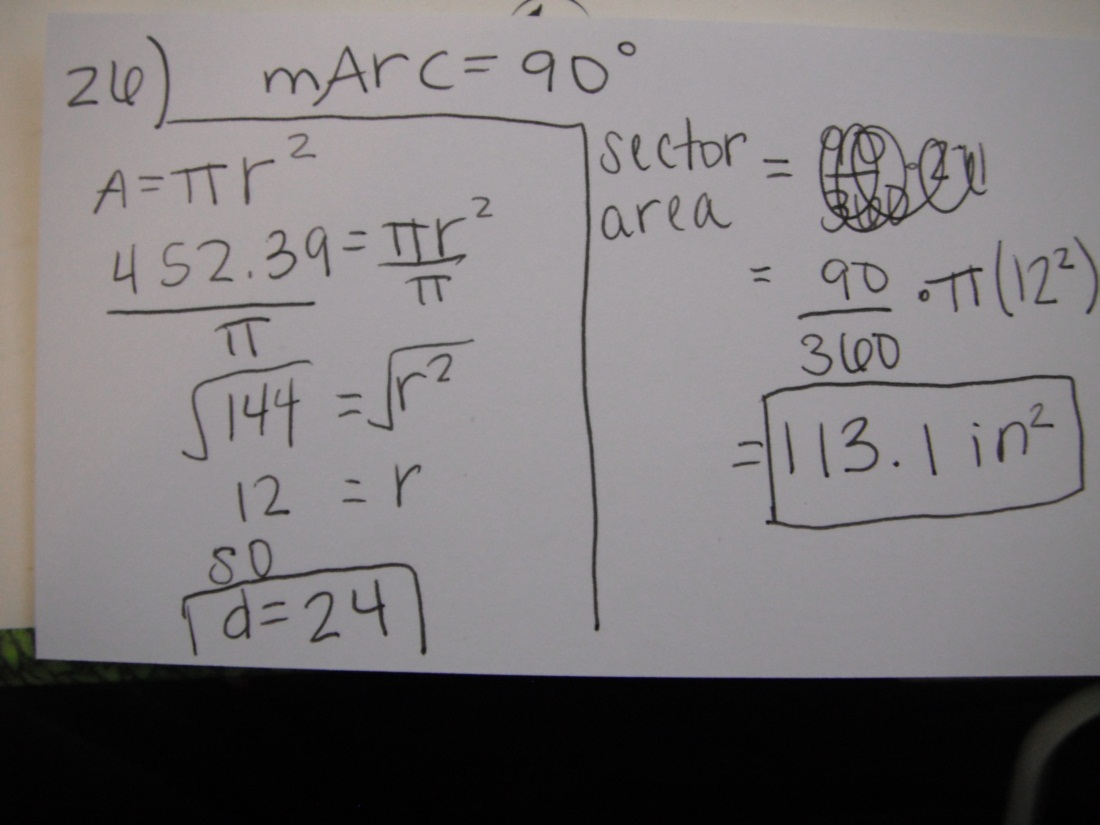 26) mArc = 90°
A = πr²
452.39 = πr²
π π
√144 = √r²
12 = r
so
d = 24
sector area =
= 90/360 · π(12²)
= 113.1 in²